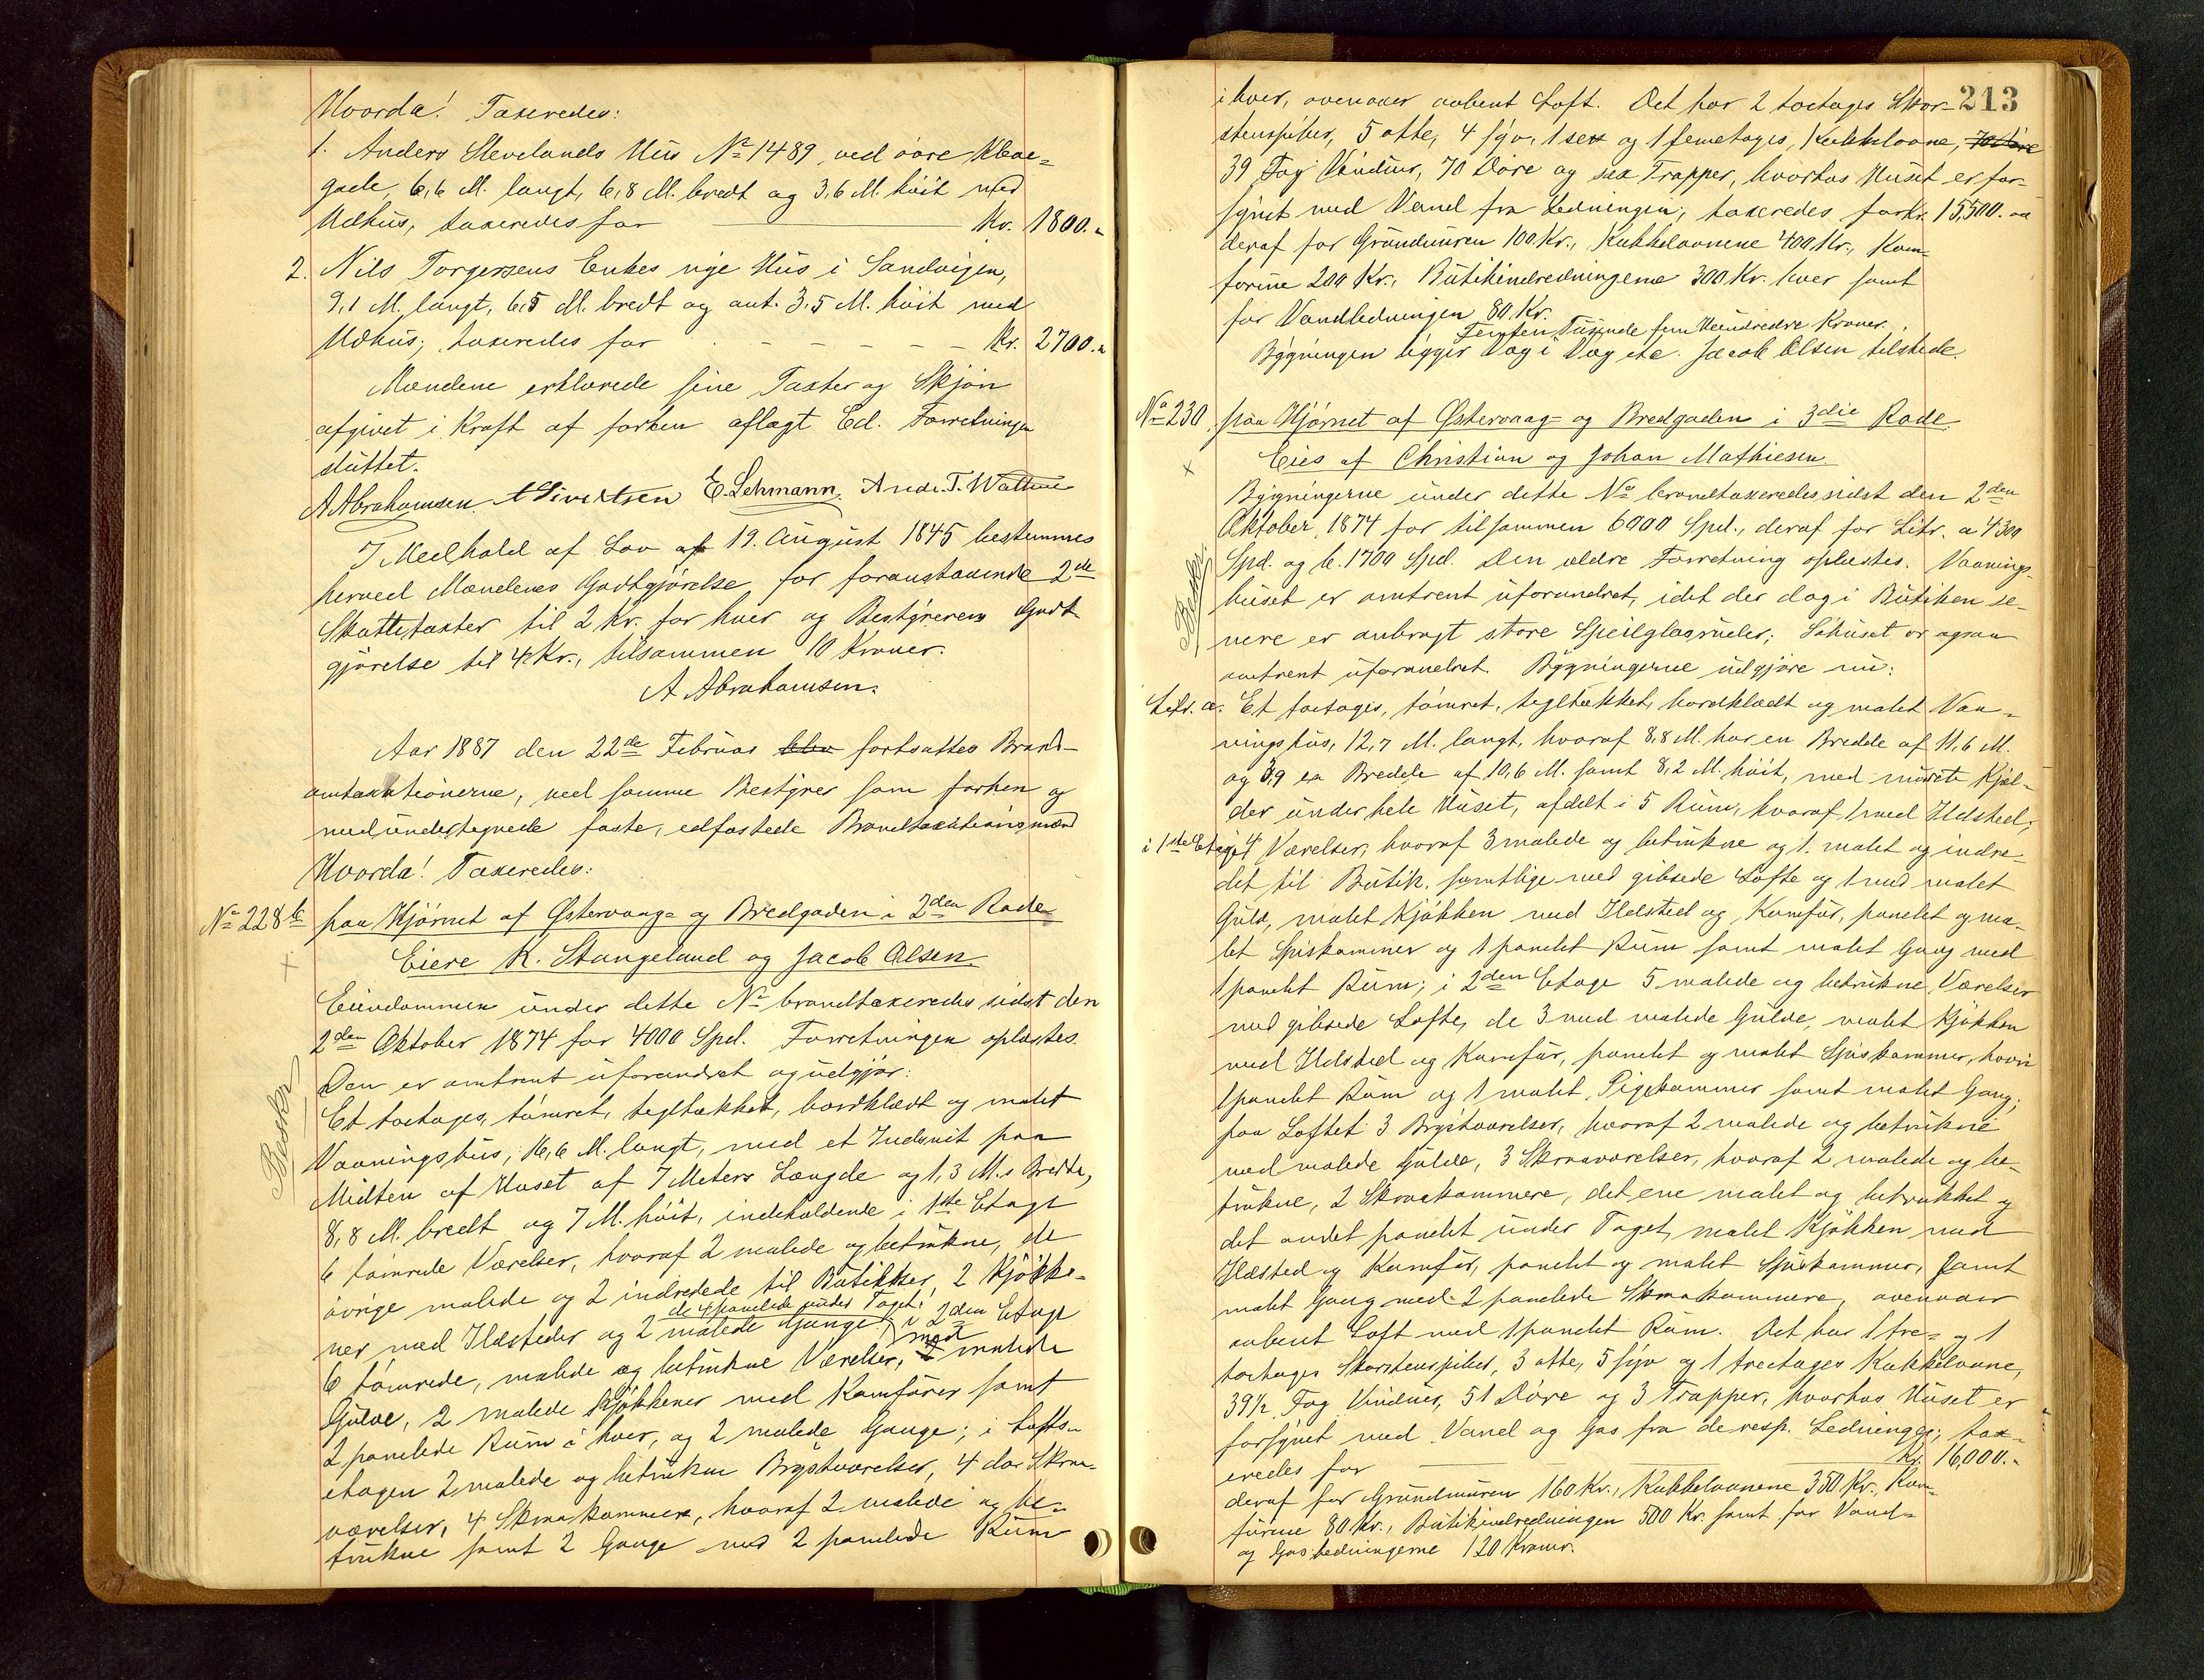 Hvorda! Taxeredes:
1. Anders Stevelands Hus No 1489, ved øvre Kleve=
gade, 6,6 M. langt, 6,8 M. bredt og 3,6 M. høit med
Udhus, taxeredes for Kr. 1800.-
2. Nils Torgersens Enkes nye Hus i Sandvigen,
9,1 M. langt, 6,5 M. bredt og omt. 3,5 M. høit med
Udhus; taxeredes for - - - - - Kr. 2700.-
Mændene erklærede sine Taxter og Skjøn
afgivet i Kraft af forhen aflagt Ed. Forretningen
sluttet.
A Abrahamsen. A Sivertsen E. Lehmann. Andr. T. Watne
I Medhold af Lov af 19. August 1845 bestemmes
herved Mændenes Godtgjørelse for foranstaaende 2de
Skattetaxter til 2 Kr. for hver og Bestyrerens Godt-
gjørelse til 4 Kr., tilsammen 10 Kroner.
A Abrahamsen.
Aar 1887 den 22de Februar blev fortsattes Brand-
omtaxationerne, ved samme Bestyrer som forhen og
med undertegnede faste, edfæstede Brandtaxationsmænd
Hvorda! Taxeredes:
No 228 b paa Hjørnet af Østervaag= og Bredgaden i 2den Rode
Eiere K. Stangeland og Jacob Olsen
Eiendommen under dette No brandtaxeredes sidst den
2den Oktober 1874 for 4000 Spd. Forretningen oplæstes.
Den er omtrent uforandret og udgjør:
Besker
Et toetages, tømret, tegltækket, bordklædt og malet
Vaaningshus, 16,6 M. langt, med et Indsnit paa
Midten af Huset af 7 Meters Længde og 1,3 M.s Bredde,
8,8 M. bredt og 7 M. høit, indeholdende i 1ste Etage
6 tømrede Værelser, hvoraf 2 malede og betrukne, de
øvrige malede og 2 indredede til Butikker, 2 Kjøkke-
de 4 panelede under Taget;
ner med Ildsteder og 2 malede Gange; i 2den Etage
6 tømrede, malede og betrukne Værelser, med malede
Gulve, 2 malede Kjøkkener med Komfurer samt
2 panelede Rum i hver, og 2 malede Gange; i Lofts-
etagen 2 malede og betrukne Brystværelser, 4 do Skraa-
værelser, 4 Skraakammere, hvoraf 2 malede og be-
trukne samt 2 Gange med 2 panelede Rum
213
i hver, ovenover aabent Loft. Det har 2 toetages Skor-
stenspiber, 5 otte, 4 syv, 1 sex og 1 femetages Kakkelovne,
39 Fag Vinduer, 70 Døre og sex Trapper, hvorhos Huset er for-
synet med Vand fra Ledningen; taxeredes for Kr. 15,500.-
deraf for Grundmuren 100 Kr., Kakkelovnene 400 Kr., Kom-
furene 200 Kr., Butikindredningerne 300 Kr. hver samt
for Vandledningen 80 Kr.
Femten Tusinde fem Hundredre Kroner.
Bygningen ligger Væg i Væg etc. Jacob Olsen tilstede.
No 230 paa Hjørnet af Østervaag= og Bredgaden i 3die Rode
Eies af Christian og Johan Mathiesen.
Bygningerne under dette No brandtaxeredes sidst den 2den
Oktober 1874 for tilsammen 6000 Spd., deraf for Litr. a 4300
Spd. og b. 1700 Spd. Den ældre Forretning oplæstes. Vaanings-
Besker
huset er omtrent uforandret, idet der dog i Butiken se-
nere er anbragt store Speilglasruder; Søhuset er ogsaa
omtrent uforandret. Bygningerne udgjøre nu:
Litr. a. Et toetages, tømret, tegltækket, bordklædt og malet Vaa-
ningshus, 12,7 M. langt, hvoraf 8,8 M. har en Bredde af 11,6 M.
og 3,9 en Bredde af 10,6 M. samt 8,2 M. høit, med muret Kjæl-
der under hele Huset, afdelt i 5 Rum, hvoraf 1 med Ildsted;
i 1ste Etage 4 Værelser, hvoraf 3 malede og betrukne og 1. malet og indre-
det til Butik, samtlige med gibsede Lofte og 1 med malet
Gulv, malet Kjøkken med Ildsted og Komfur, panelet og ma-
let Spiskammer og 1 panelet Rum samt malet Gang med
1 panelet Rum; i 2den Etage 5 malede og betrukne Værelser
med gibsede Lofte, de 3 med malede Gulve, malet Kjøkken
med Ildsted og Komfur, panelet og malet Spiskammer, hvori
1 panelet Rum og 1 malet Pigekammer samt malet Gang;
paa Loftet 3 Brystværelser, hvoraf 2 malede og betrukne
med malede Gulve, 3 Skraaværelser, hvoraf 2 malede og be-
trukne, 2 Skraakammere, det ene malet og betrukket og
det andet panelet under Taget, malet Kjøkken med
Ildsted og Komfur, panelet og malet Spiskammer, samt
malet Gang med 2 panelede Skraakammere, ovenover
aabent Loft med 1 panelet Rum. Det har 1 tre= og 1
toetages Skorstenspiber, 3 otte, 5 syv og 1 treetages Kakkelovne,
39 1/2 Fag Vinduer, 51 Døre og 3 Trapper, hvorhos Huset er
forsynet med Vand og Gas fra de resp. Ledninger; tax-
eredes for Kr. 16,000.-
deraf for Grundmuren 160 Kr., Kakkelovnene 350 Kr., Kom-
furene 80 Kr., Butikindredningen 500 Kr. samt for Vand-
og Gasledningerne 120 Kroner.